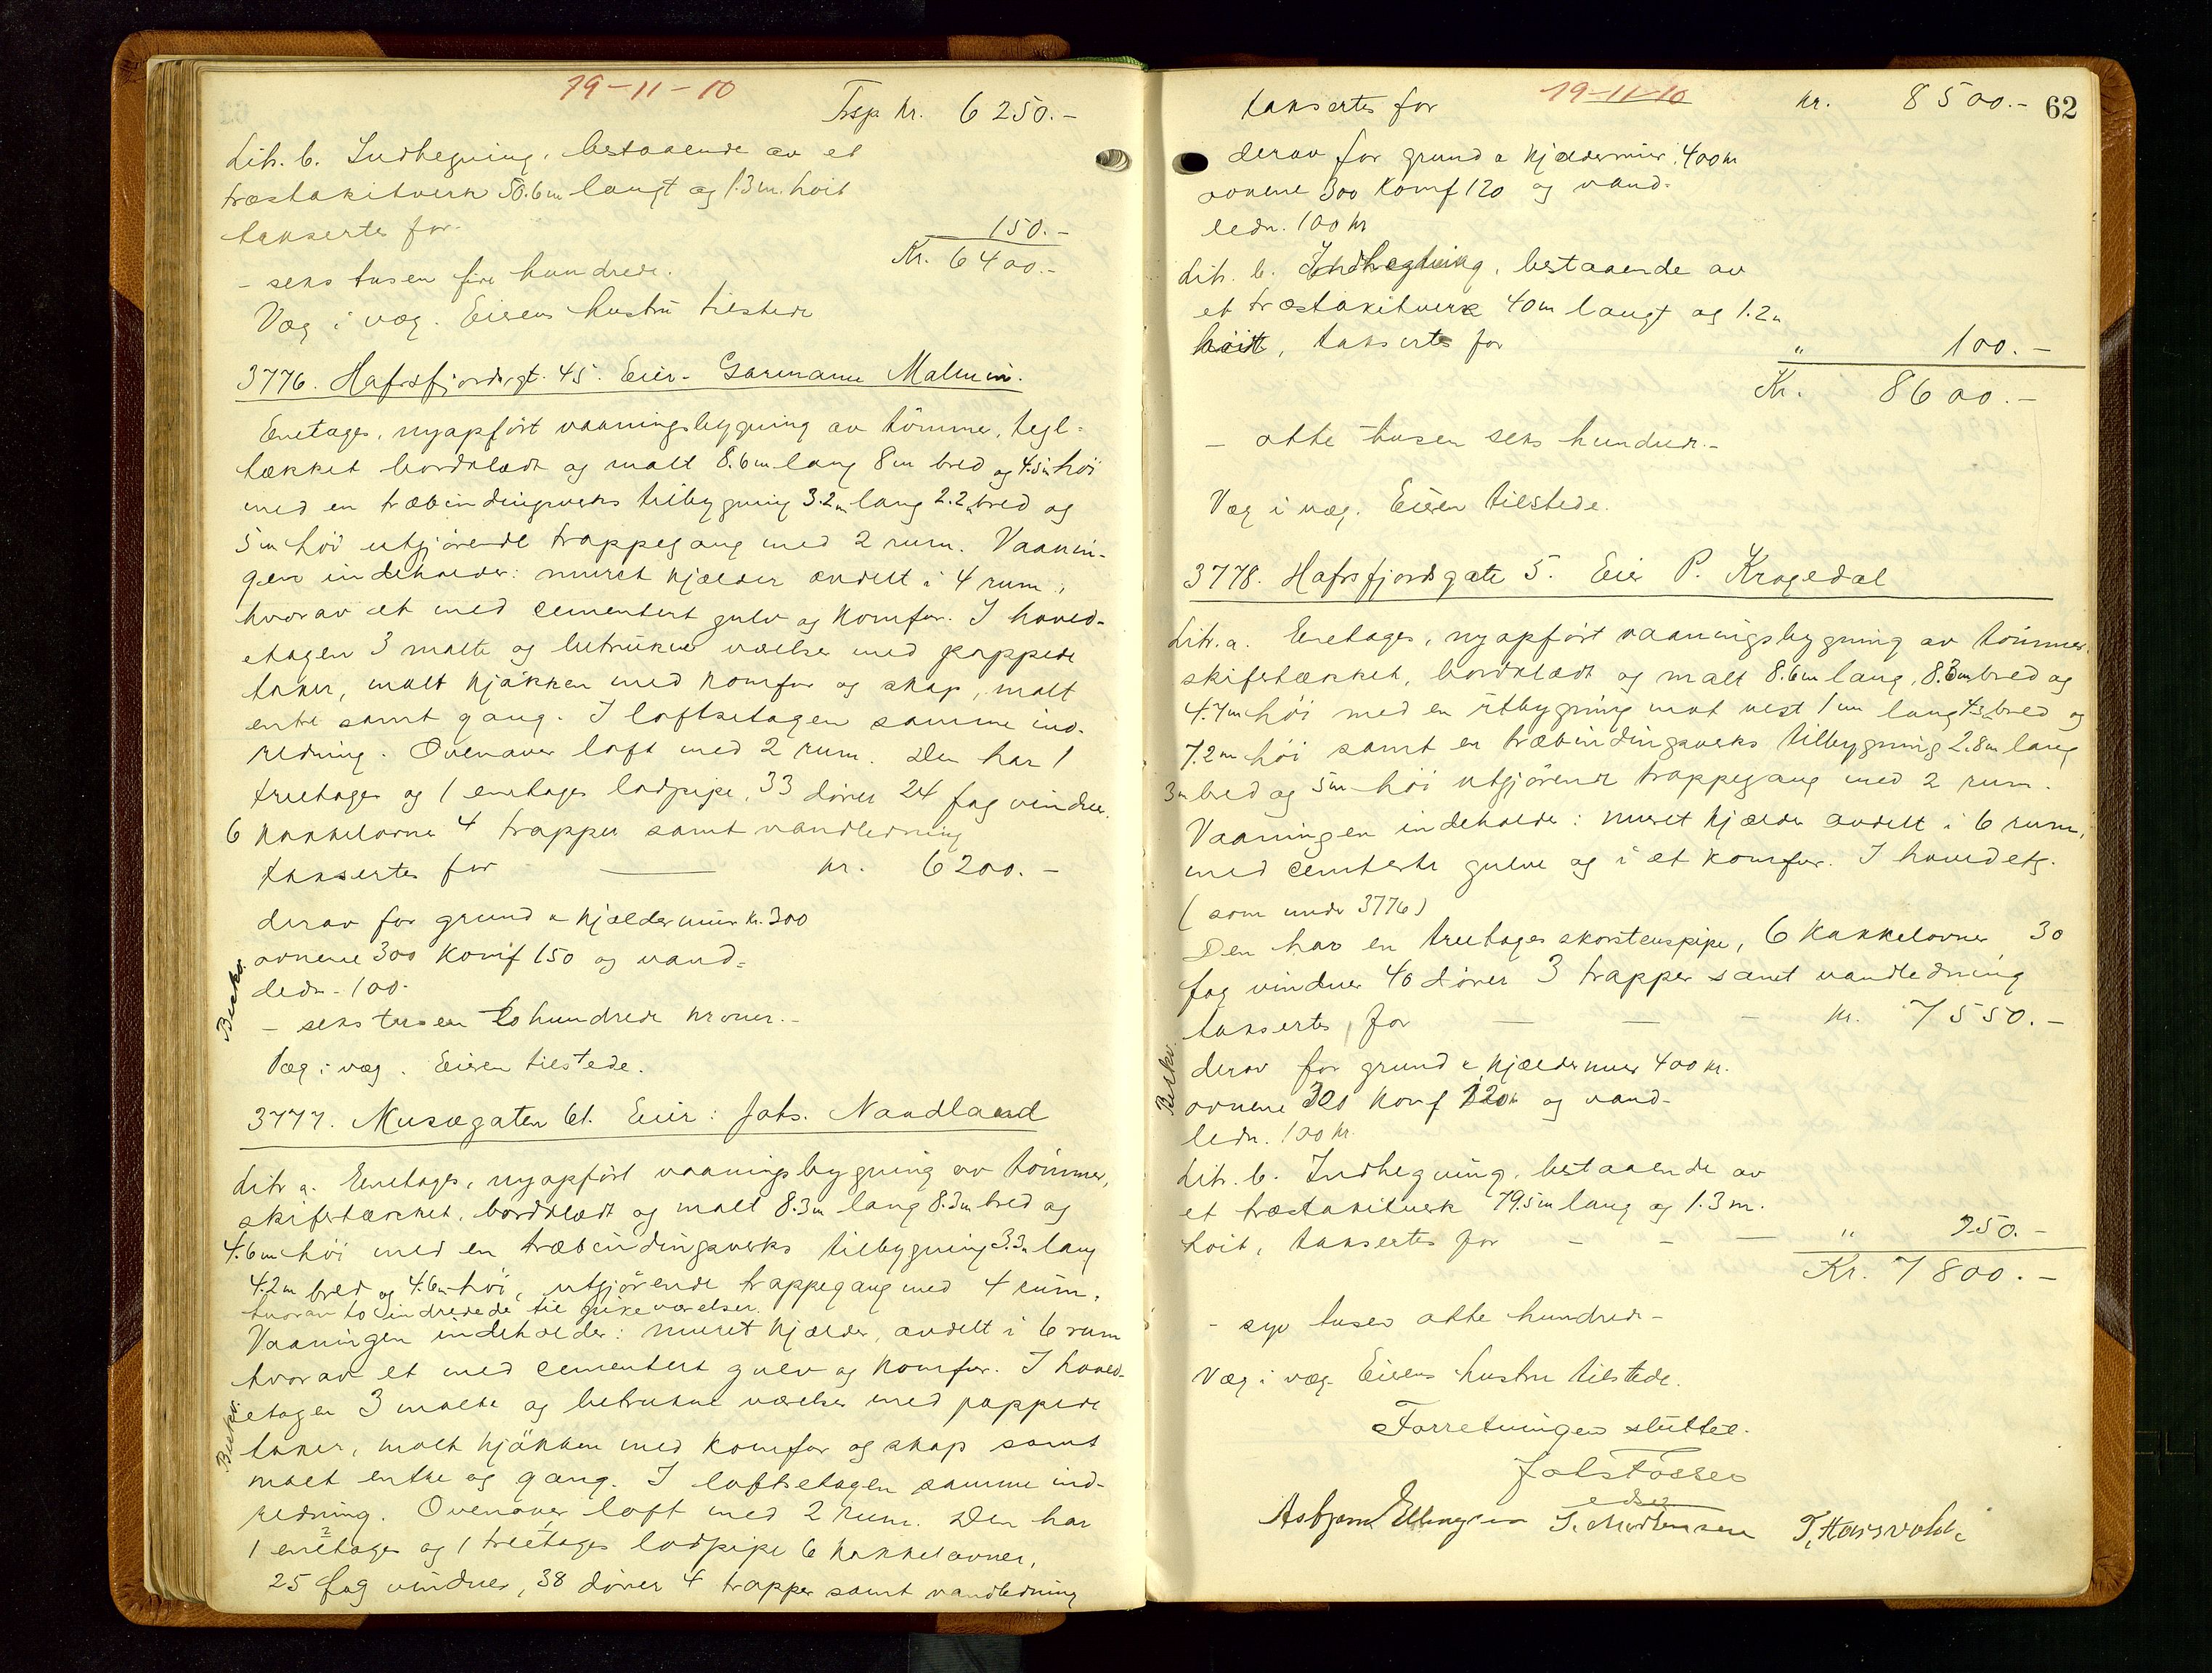 19-11-10
Trsp. kr. 6250.-
Litr. b. Indhegning, bestaaende av et
træstakitverk 50.6m langt og 1.3m. høit
takseres for
150.-
Kr. 6400.-
- seks tusen fire hundrede.
Væg i væg. Eierens hustru tilstede
3776. Hafrsfjordsgt. 45. Eier - Garmann Malmin.
Enetages, nyopført vaaningsbygning av tømmer, tegl-
tækket bordklædt og malt 8.6m lang 8m bred og 4.5m høi
med en træbindingsverks tilbygning 3.2m lang 2.2m bred og
5m høi utgjørende trappegang med 2 rum. Vaanin-
gen indeholder: muret kjælder avdelt i 4 rum,
hvorav et med cementert gulv og komfur. I hoved-
etagen 3 malte og betrukne værelser med pappede
taker, malt kjøkken med komfur og skap, malt
entre samt gang. I loftsetagen samme ind-
redning. Ovenover loft med 2 rum. Den har 1
treetages og 1 enetages lodpipe, 33 dører 24 fag vinduer
6 kakkelovne 4 trapper samt vandledning
takseres for kr. 6200.-
derav for grund & kjældermur kr. 300
ovnene 300 komf 150 og vand-
ledn. 100.
Beskr.
- seks tusen to hundrede kroner.-
Væg i væg. Eieren tilstede.
3777. Musægaten 61. Eier: Johs. Nandland
Litr a. Enetages, nyopført vaaningsbygning av tømmer,
skifertækket, bordklædt og malt 8.3m lang 8.3m bred og
4.6m høi med en træbindingsverks tilbygning 3.3m lang
4.2m bred og 4.6m høi, utgjørende trappegang med 4 rum,
hvorav to indredede til pikeværelser.
Vaaningen indeholder: muret kjælder, avdelt i 6 rum
hvorav et med cementert gulv og komfur. I hoved-
etagen 3 malte og betrukne værelser med pappede
Beskr.
taker, malt kjøkken med komfur og skap samt
malt entre og gang. I loftsetagen samme ind-
redning. Ovenover loft med 2 rum. Den har
2
1 enetages og 1 treetages lodpipe 6 kakkelovner,
25 fag vinduer, 38 dører 4 trapper samt vandledning
19-11-10
62
takseres for kr. 8500.-
derav for grund & kjældermur 400 kr
ovnene 300 komf 120 og vand-
ledn. 100 kr
Litr. b. Indhegning, bestaaende av
et træstakitverk 40m langt og 1.2m
høit, takseres for " 100.-
Kr. 8600.-
- otte tusen seks hundrede.-
Væg i væg. Eieren tilstede.
3778. Hafrsfjordsgate 5. Eier P. Kragedal
Litr. a. Enetages, nyopført vaaningsbygning av tømmer,
skifertækket, bordklædt og malt 8.6m lang, 8.3m bred og
4.7m høi med en utbygning mot vest 1m lang 4.3m bred og
7.2m høi samt en træbindingsverks tilbygning 2.8m lang
3m bred og 5m høi utgjørende trappegang med 2 rum.
Vaaningen indeholder: muret kjælder avdelt i 6 rum,
med cementerte gulve og i et komfur. I hovedetg.
(som under 3776)
Den har en treetages skorstenspipe, 6 kakkelovner 30
fag vinduer 40 dører 3 trapper samt vandledning
takseres for kr. 7550.-
derav for grund & kjældermur 400 kr.
Beskr.
ovnene 300 komf 120 kr og vand-
ledn. 100 kr.
Litr. b. Indhegning, bestaaende av
et træstakitverk 79.5m lang og 1.3m.
høit, takseres for " 250.-
Kr. 7800.-
- syv tusen otte hundrede -
Væg i væg. Eierens hustru tilstede.
Forretningen sluttet.
Joh Tosseo
edsv
Asbjørn Ellingsen S. Mortensen T. Harsvold